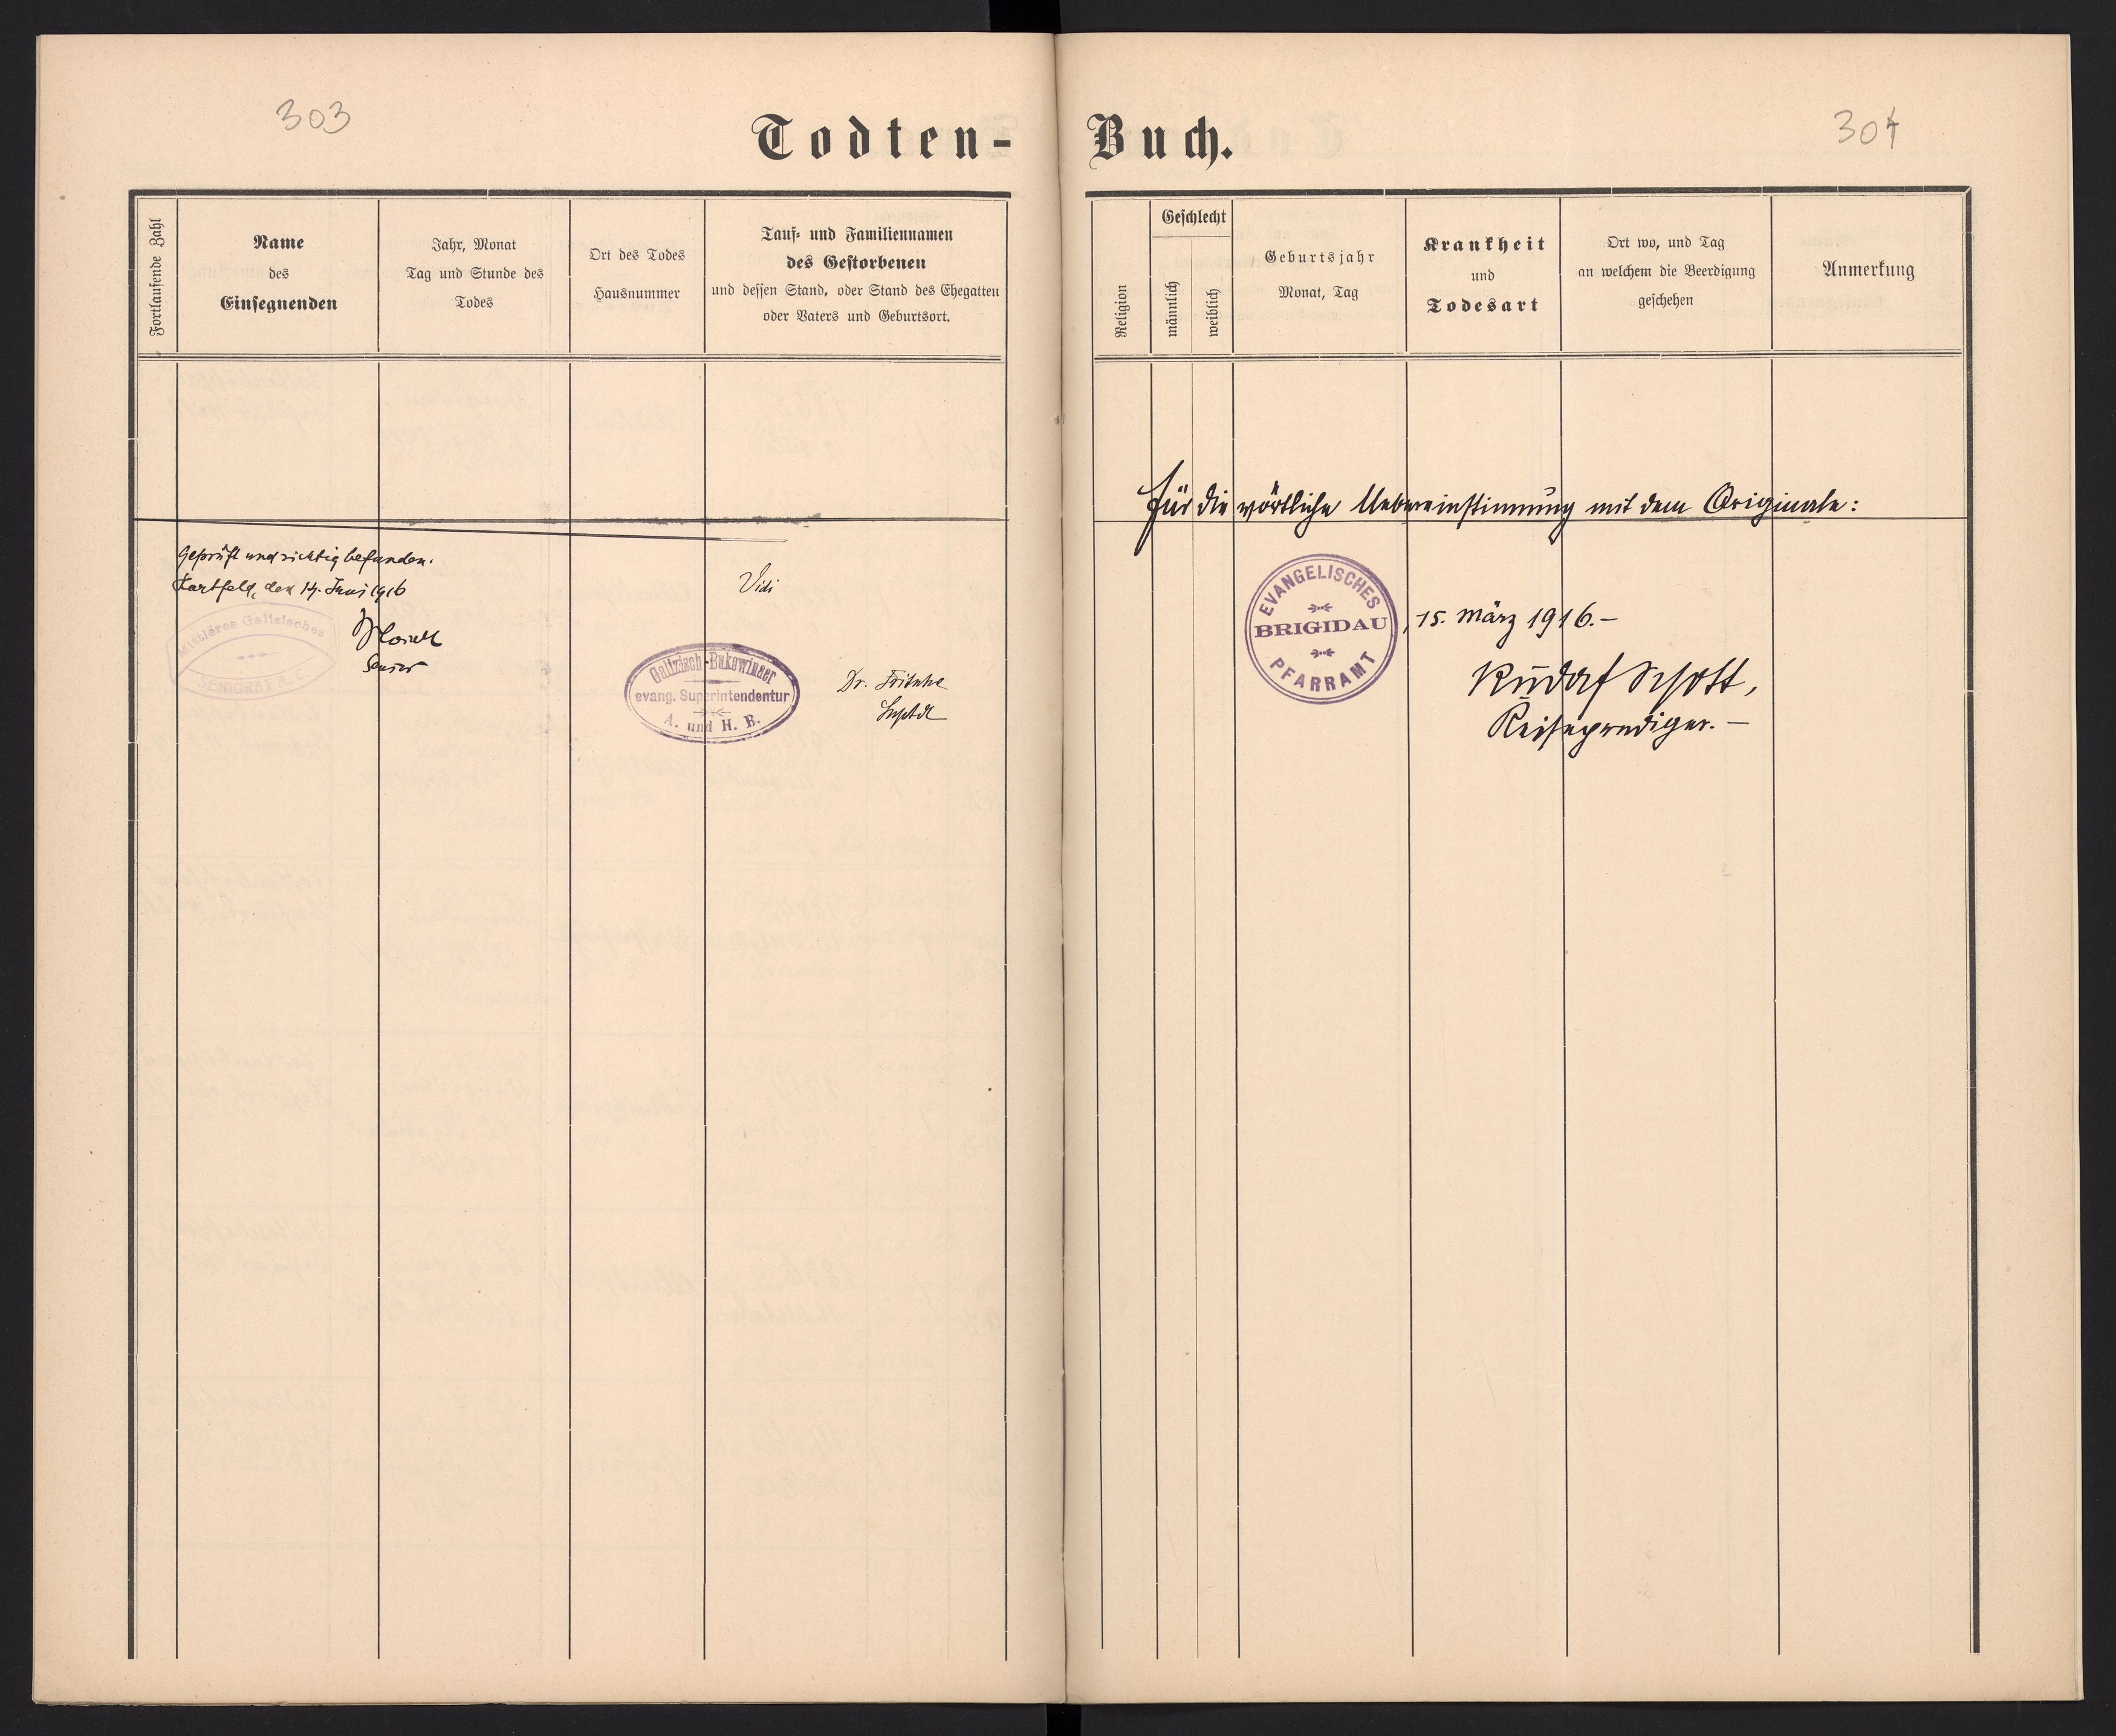 303
Todten-
Fortlaufende Zahl
Name
des
Einsegnenden
Jahr, Monat
Tag und Stunde des
Todes
Ort des Todes
Hausnummer
Tauf- und Familiennamen
des Gestorbenen
und dessen Stand, oder Stand des Ehegatten
oder Vaters und Geburtsort.
Geprüft und richtig befunden.
Hartfeld, den 14. Juni 1916
Mittleres Galizisches
SENIORAT A. C.
Senior
Vidi
Galizisch-Bukowinaer
evang. Superintendentur
A. und H. B.
Dr. Fritsche
Suptdt
Buch.
304
Religion
Geschlecht
männlich
weiblich
Geburtsjahr
Monat, Tag
Krankheit
und
Todesart
Ort wo, und Tag
an welchem die Beerdigung
geschehen
Anmerkung
Für die wörtliche Uebereinstimmung mit dem Originale:
EVANGELISCHES
BRIGIDAU
PFARRAMT
, 15. März 1916.-
Rudolf Schott,
Reiseprediger. -